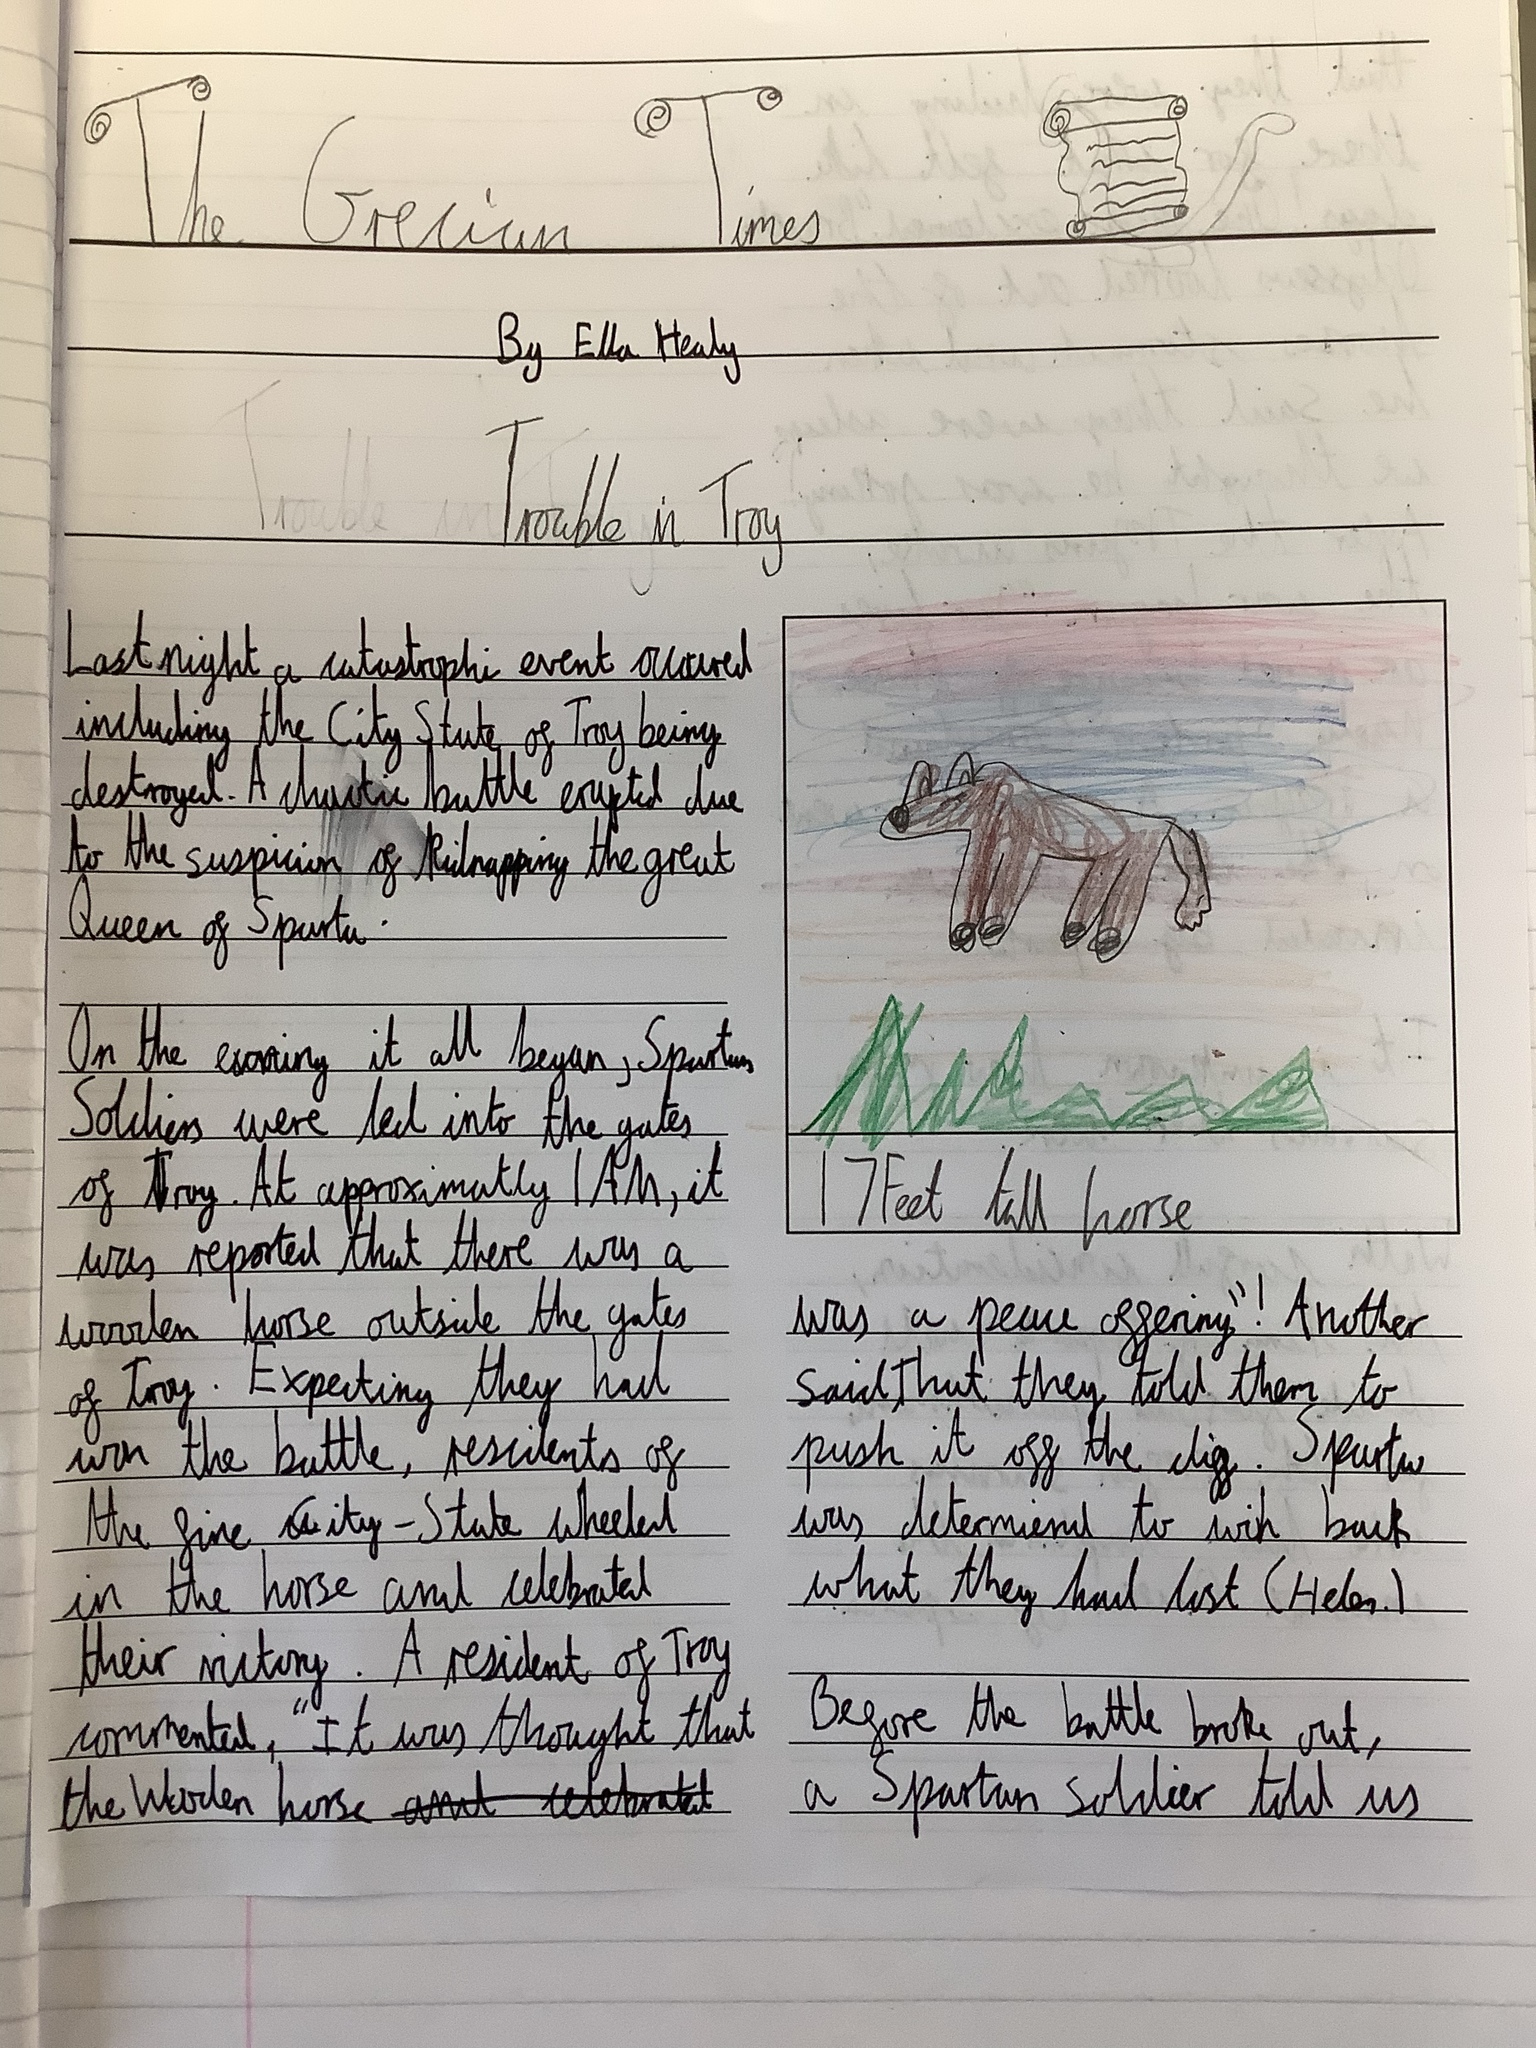 The Grecian Times
By Ella Healy
Trouble in Troy
Last night a catastrophi event occured
including the City State of Troy being
destroyed. A chaotic battle erupted due
to the suspicion of Kidnapping the great
Queen of Sparta.
On the evening it all began, Spartan
Soldiers were led into the gates
of Troy. At approximatly 1AM, it
was reported that there was a
wooden horse outside the gates
of Troy. Expecting they had
won the battle, residents of
the fine City-State wheeled
in the horse and celebrated
their victory. A resident of Troy
commented, "It was thought that
the Wooden horse and celebrated
17 Feet tall horse
was a peace offering"! Another
said, that they told them to
push it off the cliff. Sparta
was determiend to win back
what they had lost (Helen.)
Before the battle broke out,
a Spartan soldier told us